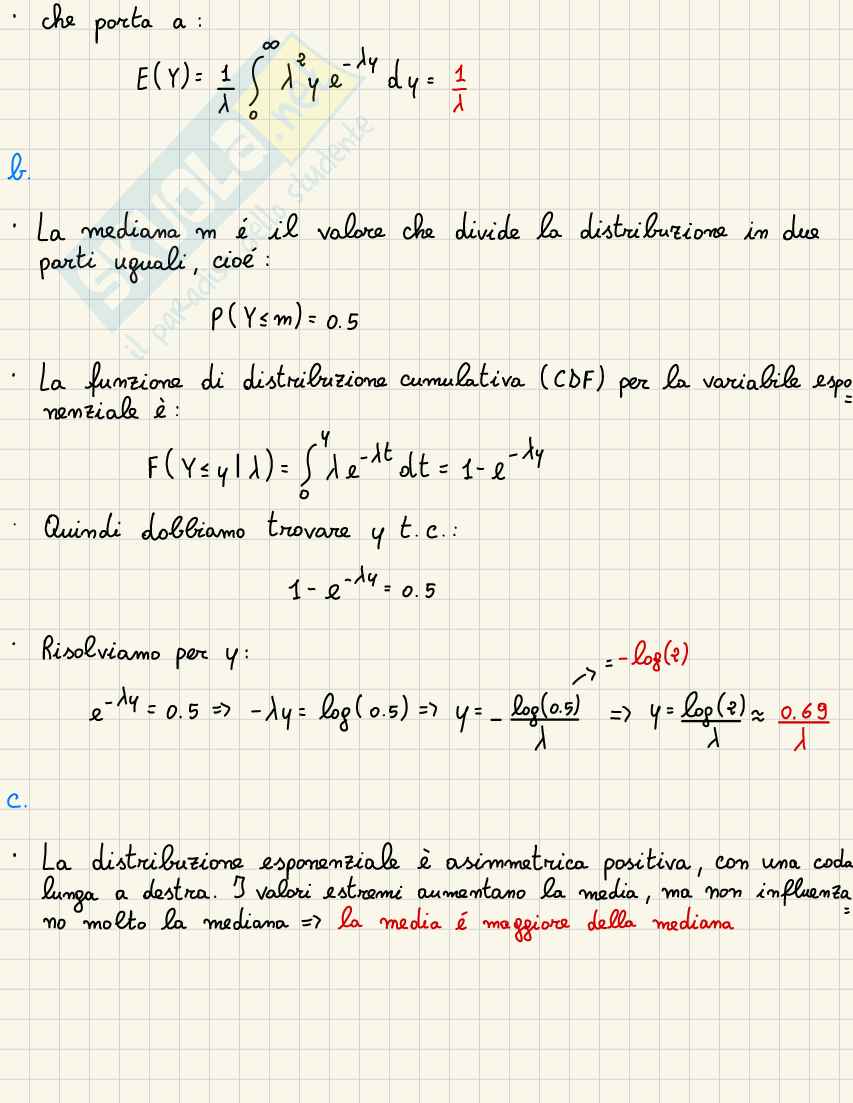 · che porta a :
E(Y) = 1/λ ∫₀^∞ λ² y e^(-λy) dy = 1/λ
SKUOLA.net
il paradiso dello studente
b.
· La mediana m é il valore che divide la distribuzione in due
parti uguali, cioé :
P(Y≤m) = 0.5
· La funzione di distribuzione cumulativa (CDF) per la variabile espo=
nenziale è :
F(Y≤y|λ) = ∫₀^y λ e^(-λt) dt = 1 - e^(-λy)
· Quindi dobbiamo trovare y t.c.:
1 - e^(-λy) = 0.5
· Risolviamo per y :
= -log(2)
e^(-λy) = 0.5 => -λy = log(0.5) => y = - log(0.5)/λ => y = log(2)/λ ≈ 0.69/λ
c.
· La distribuzione esponenziale è asimmetrica positiva, con una coda
lunga a destra. I valori estremi aumentano la media, ma non influenza=
no molto la mediana => la media é maggiore della mediana